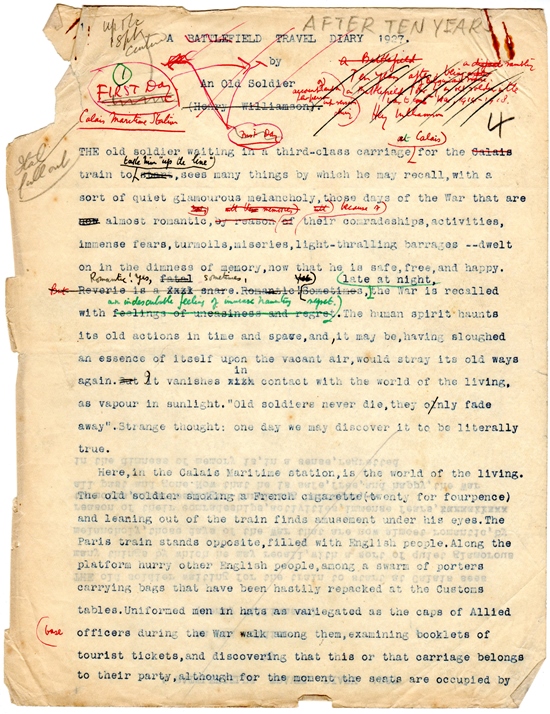 up the
AFTER TEN YEARS
A BATTLEFIELD TRAVEL DIARY 1927.
by
a Battlefield
An Old Soldier
(Henry Williamson).
Henry Williamson
1
FIRST DAY
Calais Maritime Station
First Day
4
Ital
full out
at Calais
THE old soldier waiting in a third-class carriage, for the Calais
"up the line"
train to start, sees many things by which he may recall, with a
sort of quiet glamourous melancholy, those days of the War that are
because of
now almost romantic, by reason of their comradeships,activities,
immense fears,turmoils,miseries,light-thralling barrages --dwelt
on in the dimness of memory,now that he is safe,free,and happy.
Romantic? Yes, fatal sometimes, late at night,
But Reverie is a snare. Romantic! Sometimes, the War is recalled
an indescribable feeling of immense haunting regret.
with feelings of uneasiness and regret.The human spirit haunts
its old actions in time and space,and,it may be,having sloughed
an essence of itself upon the vacant air,would stray its old ways
in
again.But it vanishes xixk contact with the world of the living,
as vapour in sunlight."Old soldiers never die,they only fade
away".Strange thought: one day we may discover it to be literally
true.
Here,in the Calais Maritime station,is the world of the living.
The old soldier smoking a French cigarette(twenty for fourpence)
and leaning out of the train finds amusement under his eyes.The
Paris train stands opposite,filled with English people.Along the
platform hurry other English people,among a swarm of porters
carrying bags that have been hastily repacked at the Customs
tables.Uniformed men in hats as variegated as the caps of Allied
base
officers during the War walk among them,examining booklets of
tourist tickets,and discovering that this or that carriage belongs
to their party,although for the moment the seats are occupied by